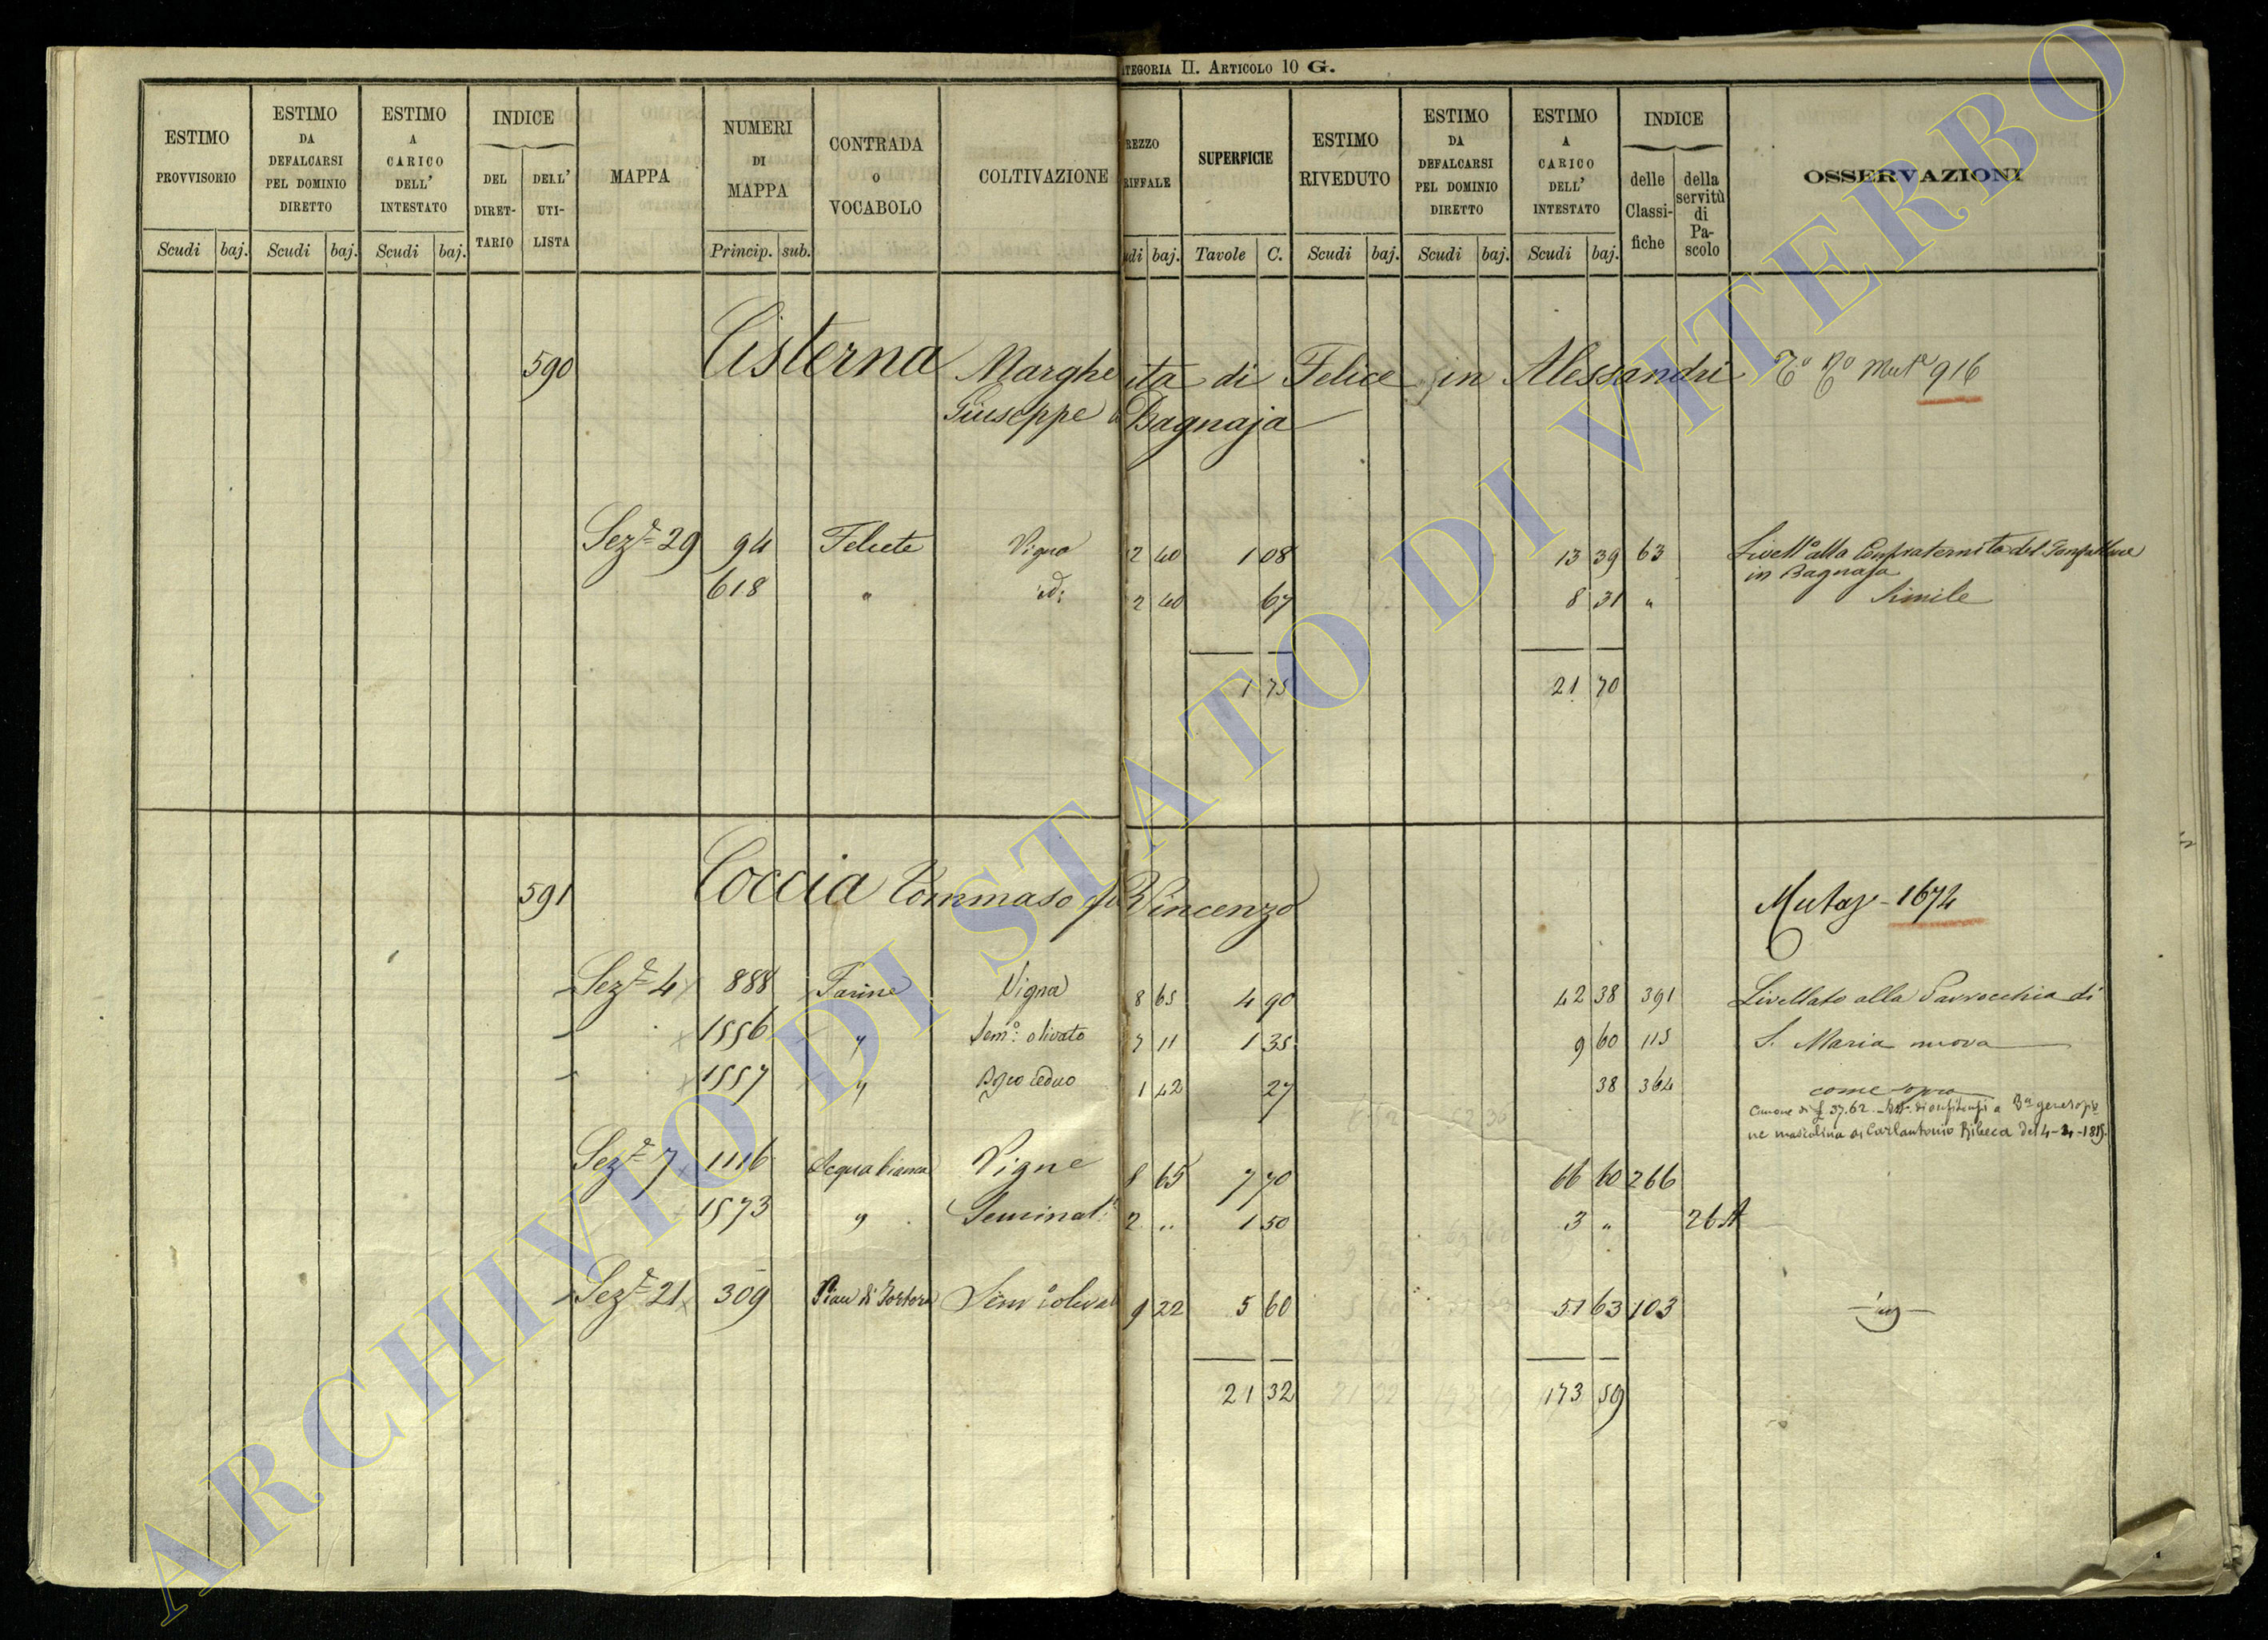 CATEGORIA II. ARTICOLO 10 G.
ESTIMO PROVVISORIO Scudi baj.
ESTIMO DA DEFALCARSI PEL DOMINIO DIRETTO Scudi baj.
ESTIMO A CARICO DELL' INTESTATO Scudi baj.
INDICE DEL DIRETTARIO DELL' UTILISTA
MAPPA
NUMERI DI MAPPA Princip. sub.
CONTRADA O VOCABOLO
COLTIVAZIONE
REZZO RIFFALE udi baj.
SUPERFICIE Tavole C.
ESTIMO RIVEDUTO Scudi baj.
ESTIMO DA DEFALCARSI PEL DOMINIO DIRETTO Scudi baj.
ESTIMO A CARICO DELL' INTESTATO Scudi baj.
INDICE delle Classifiche della servitù di Pascolo
OSSERVAZIONI
590 Cisterna Margherita di Felice in Alessandri 916
Giuseppe Bagnaja
Sezᵉ 29 94 Feliete Vigna 2 40 1 08 13 39 63 Livellº alla Confraternita del
in Bagnaja
618 " id: 2 40 67 8 31 " Simile
1 75 21 70
591 Coccia Tommaso Vincenzo Mutaz- 1674
Sezᵉ 4 888 Farine Vigna 8 65 4 90 42 38 391 Livellato alla Parrocchia di
1556 " Semº: olivato 7 11 1 35 9 60 115 S. Maria nuova
1557 " Bsco ceduo 1 42 27 38 364 come sopra
Canone di £ 37.62 a 3ª
ne mascolina di Carlantonio Ribeca del 4-2-1815
Sezᵉ 7 1116 Acqua bianca Vigne 8 65 7 70 66 60 266
1573 " Seminatº 2 .. 1 50 3 " 26 A
Sezᵉ 21 309 Pian di Tortora Sem º olivat 9 22 5 60 51 63 103
21 32 173 59
ARCHIVIO DI STATO DI VITERBO